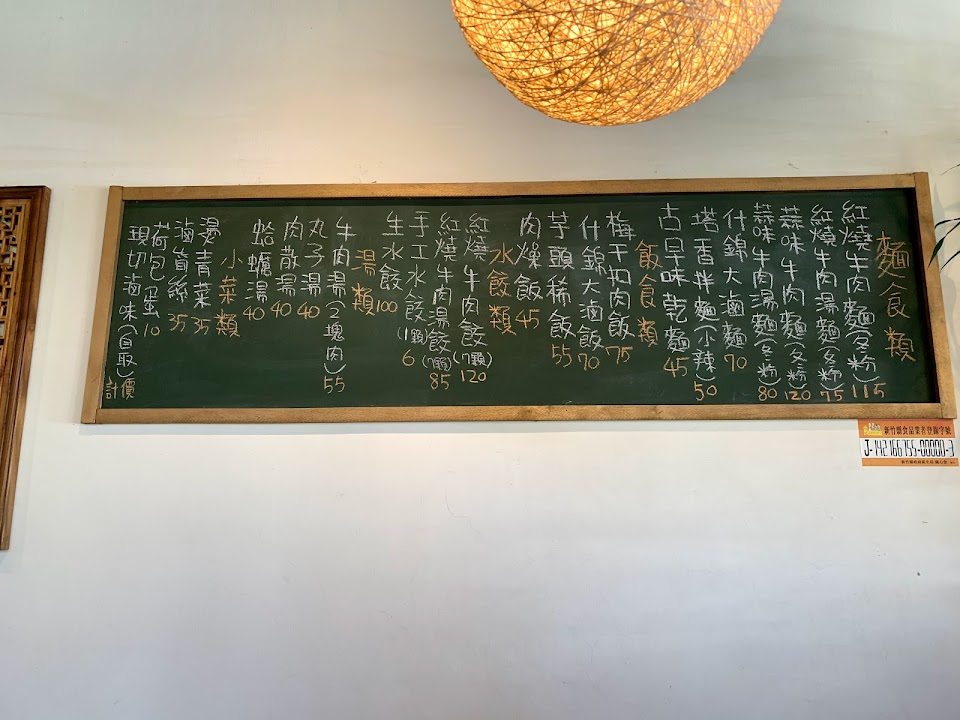 麵食類
紅燒牛肉麵(冬粉)115
紅燒牛肉湯麵(冬粉)75
蒜味牛肉麵(冬粉)120
蒜味牛肉湯麵(冬粉)80
什錦大滷麵70
塔香拌麵(小辣)50
古早味乾麵45
飯食類
梅干扣肉飯75
什錦大滷飯70
芋頭稀飯55
肉燥飯45
水餃類
紅燒牛肉餃(7顆)120
紅燒牛肉湯餃(7顆)85
手工水餃(1顆)6
生水餃100
湯類
牛肉湯(2塊肉)55
丸子湯40
肉散湯40
蛤蠣湯40
小菜類
燙青菜35
滷首絲35
荷包蛋10
現切滷味(自取)計價
新竹縣食品業者登錄字號
J-142166755-00000-3